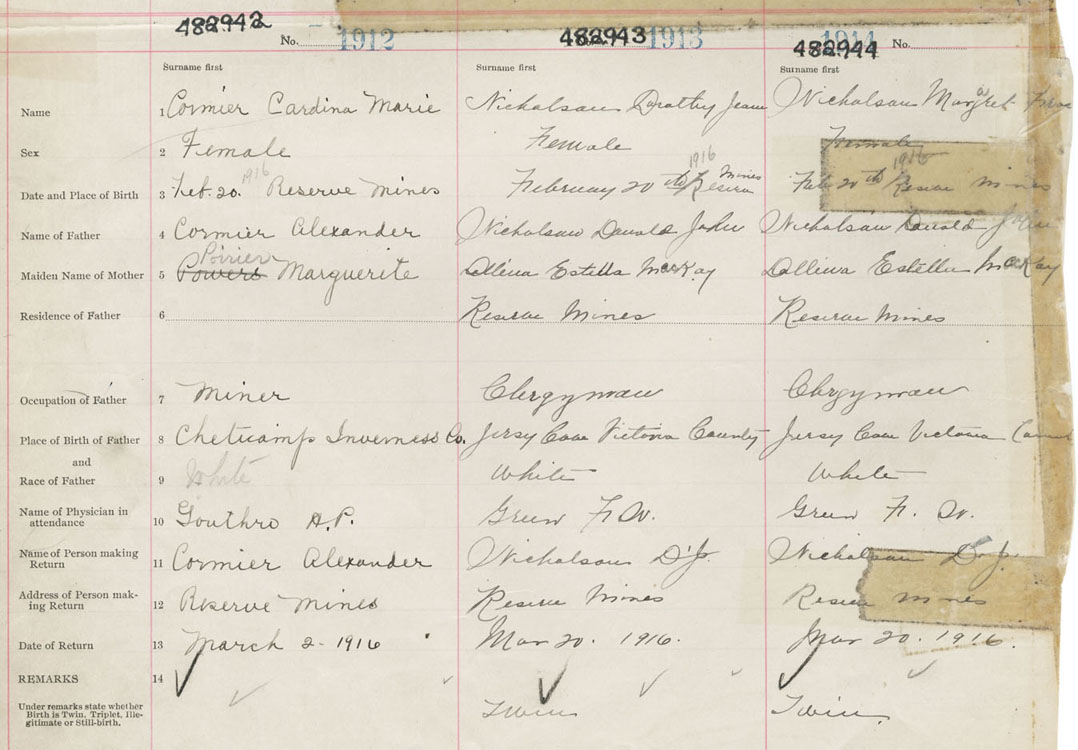 482942 482943 482944
No. 1912 1913 1914 No.
Surname first Surname first Surname first
Name 1 Cormier Cardina Marie Nicholson Dorothy Jean Nicholson Margaret
Sex 2 Female Female Female
1916 1916 1916
Date and Place of Birth 3 Feb. 20. Reserve Mines February 20th Reserve Mines Feb 20th Reserve Mines
Name of Father 4 Cormier Alexander Nicholson Donald John Nicholson Donald John
Poirier
Maiden Name of Mother 5 Powers Marguerite Estella MacKay Estella MacKay
Residence of Father 6 Reserve Mines Reserve Mines
Occupation of Father 7 Miner Clergyman Clergyman
Place of Birth of Father 8 Cheticamp Inverness Co. Jersy Cove Victoria County Jersy Cove Victoria
and
Race of Father 9 White White White
Name of Physician in
attendance 10 Gouthro A.P. Green F. W. Green F. W.
Name of Person making
Return 11 Cormier Alexander Nicholson D. J. Nicholson D. J.
Address of Person mak-
ing Return 12 Reserve Mines Reserve Mines Reserve Mines
Date of Return 13 March 2 - 1916 Mar 20. 1916. Mar 20. 1916.
REMARKS 14
Under remarks state whether
Birth is Twin, Triplet, Ille-
gitimate or Still-birth. Twin Twin.